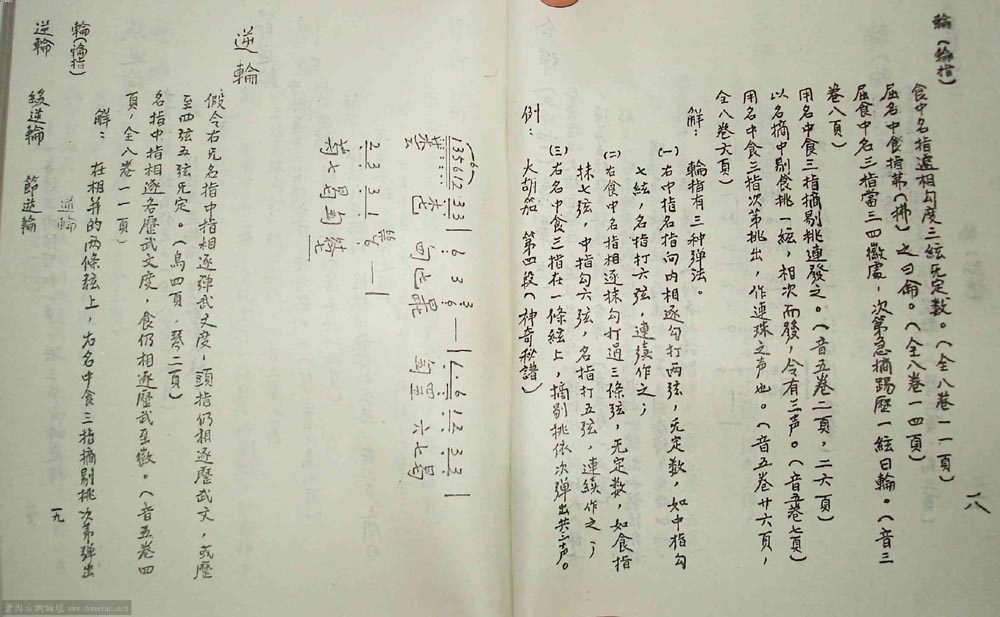 輪（輪指）
食中名指遞相勾度三絃无定数。（全八卷一一頁）
屈名中食指苐（拂）之曰侖。（全八卷一四頁）
屈食中名三指當三四徽處，次第急摘踢歷一絃曰輪。（音三
卷八頁）
用名中食三指摘剔挑連發之。（音五卷二頁，二六頁）
以名摘中剔食挑一絃，相次而發，令有三声。（音五卷七頁）
用名中食三指次第挑出，作連珠之声也。（音五卷廿六頁，
全八卷六頁）
解： 輪指有三种弹法。
㈠右中指名指向内相逐勾打两弦，无定数，如中指勾
七絃，名指打六弦，連续作之；
㈡右食中名指相逐抹勾打過三條弦，无定数，如食指
抹七弦，中指勾六弦，名指打五弦，連续作之；
㈢右名中食三指在一條絃上，摘剔挑依次弹出共三声。
例： 大胡笳 第四段（神奇秘譜）
一八
逆輪
假令右无名指中指相逐弹武文度，頭指仍相逐歷武文，或歷
至四弦五弦无定。（烏四頁，琴二頁）
名指中指相逐各歷武文度，食仍相逐歷武至徽。（音五卷四
頁，全八卷一一頁）
輪（輪指） 逆輪
解： 在相並的两條弦上，右名中食三指摘剔挑次第弹出
逆輪 緩逆輪 節逆輪
一九